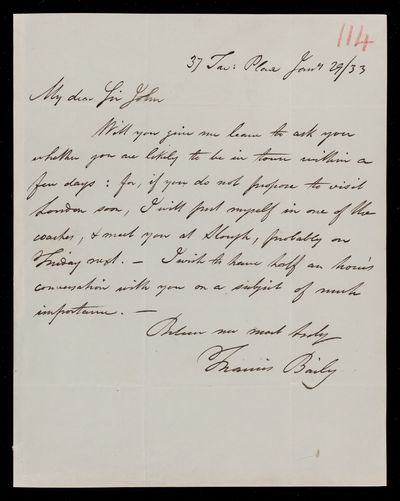 114
37 Tav: Place Jany 29/33
My dear Sir John
Will you give me leave to ask you
whether you are likely to be in town within a
few days: for, if you do not propose to visit
London soon, I will put myself in one of the
coaches, & meet you at Slough, probably on
Friday next. — I wish to have half an hour's
conversation with you on a subject of much
importance. —
Believe me most truly
Francis Baily